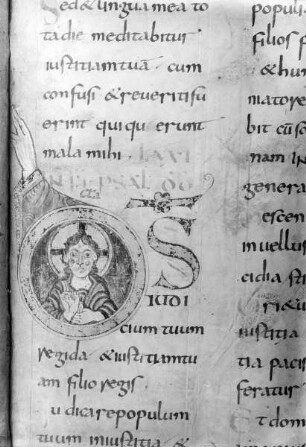 Sed&lingua mea to
ta die meditabitur
iustitiam tuā · cum
confusi &reveriti fu
erint qui querunt
mala mihi · LXXI
PSAL
S
IUDI
cium tuum
regi da &iustitiam tu
am filio regis ·
udicare populum
tuum in iustitia &
populi
filios p
&hu
niatore
bit cū s
nam in
genera
escen
in vellus
cidia st
ri&u
iustitia
tia pacis
feratur
t dom